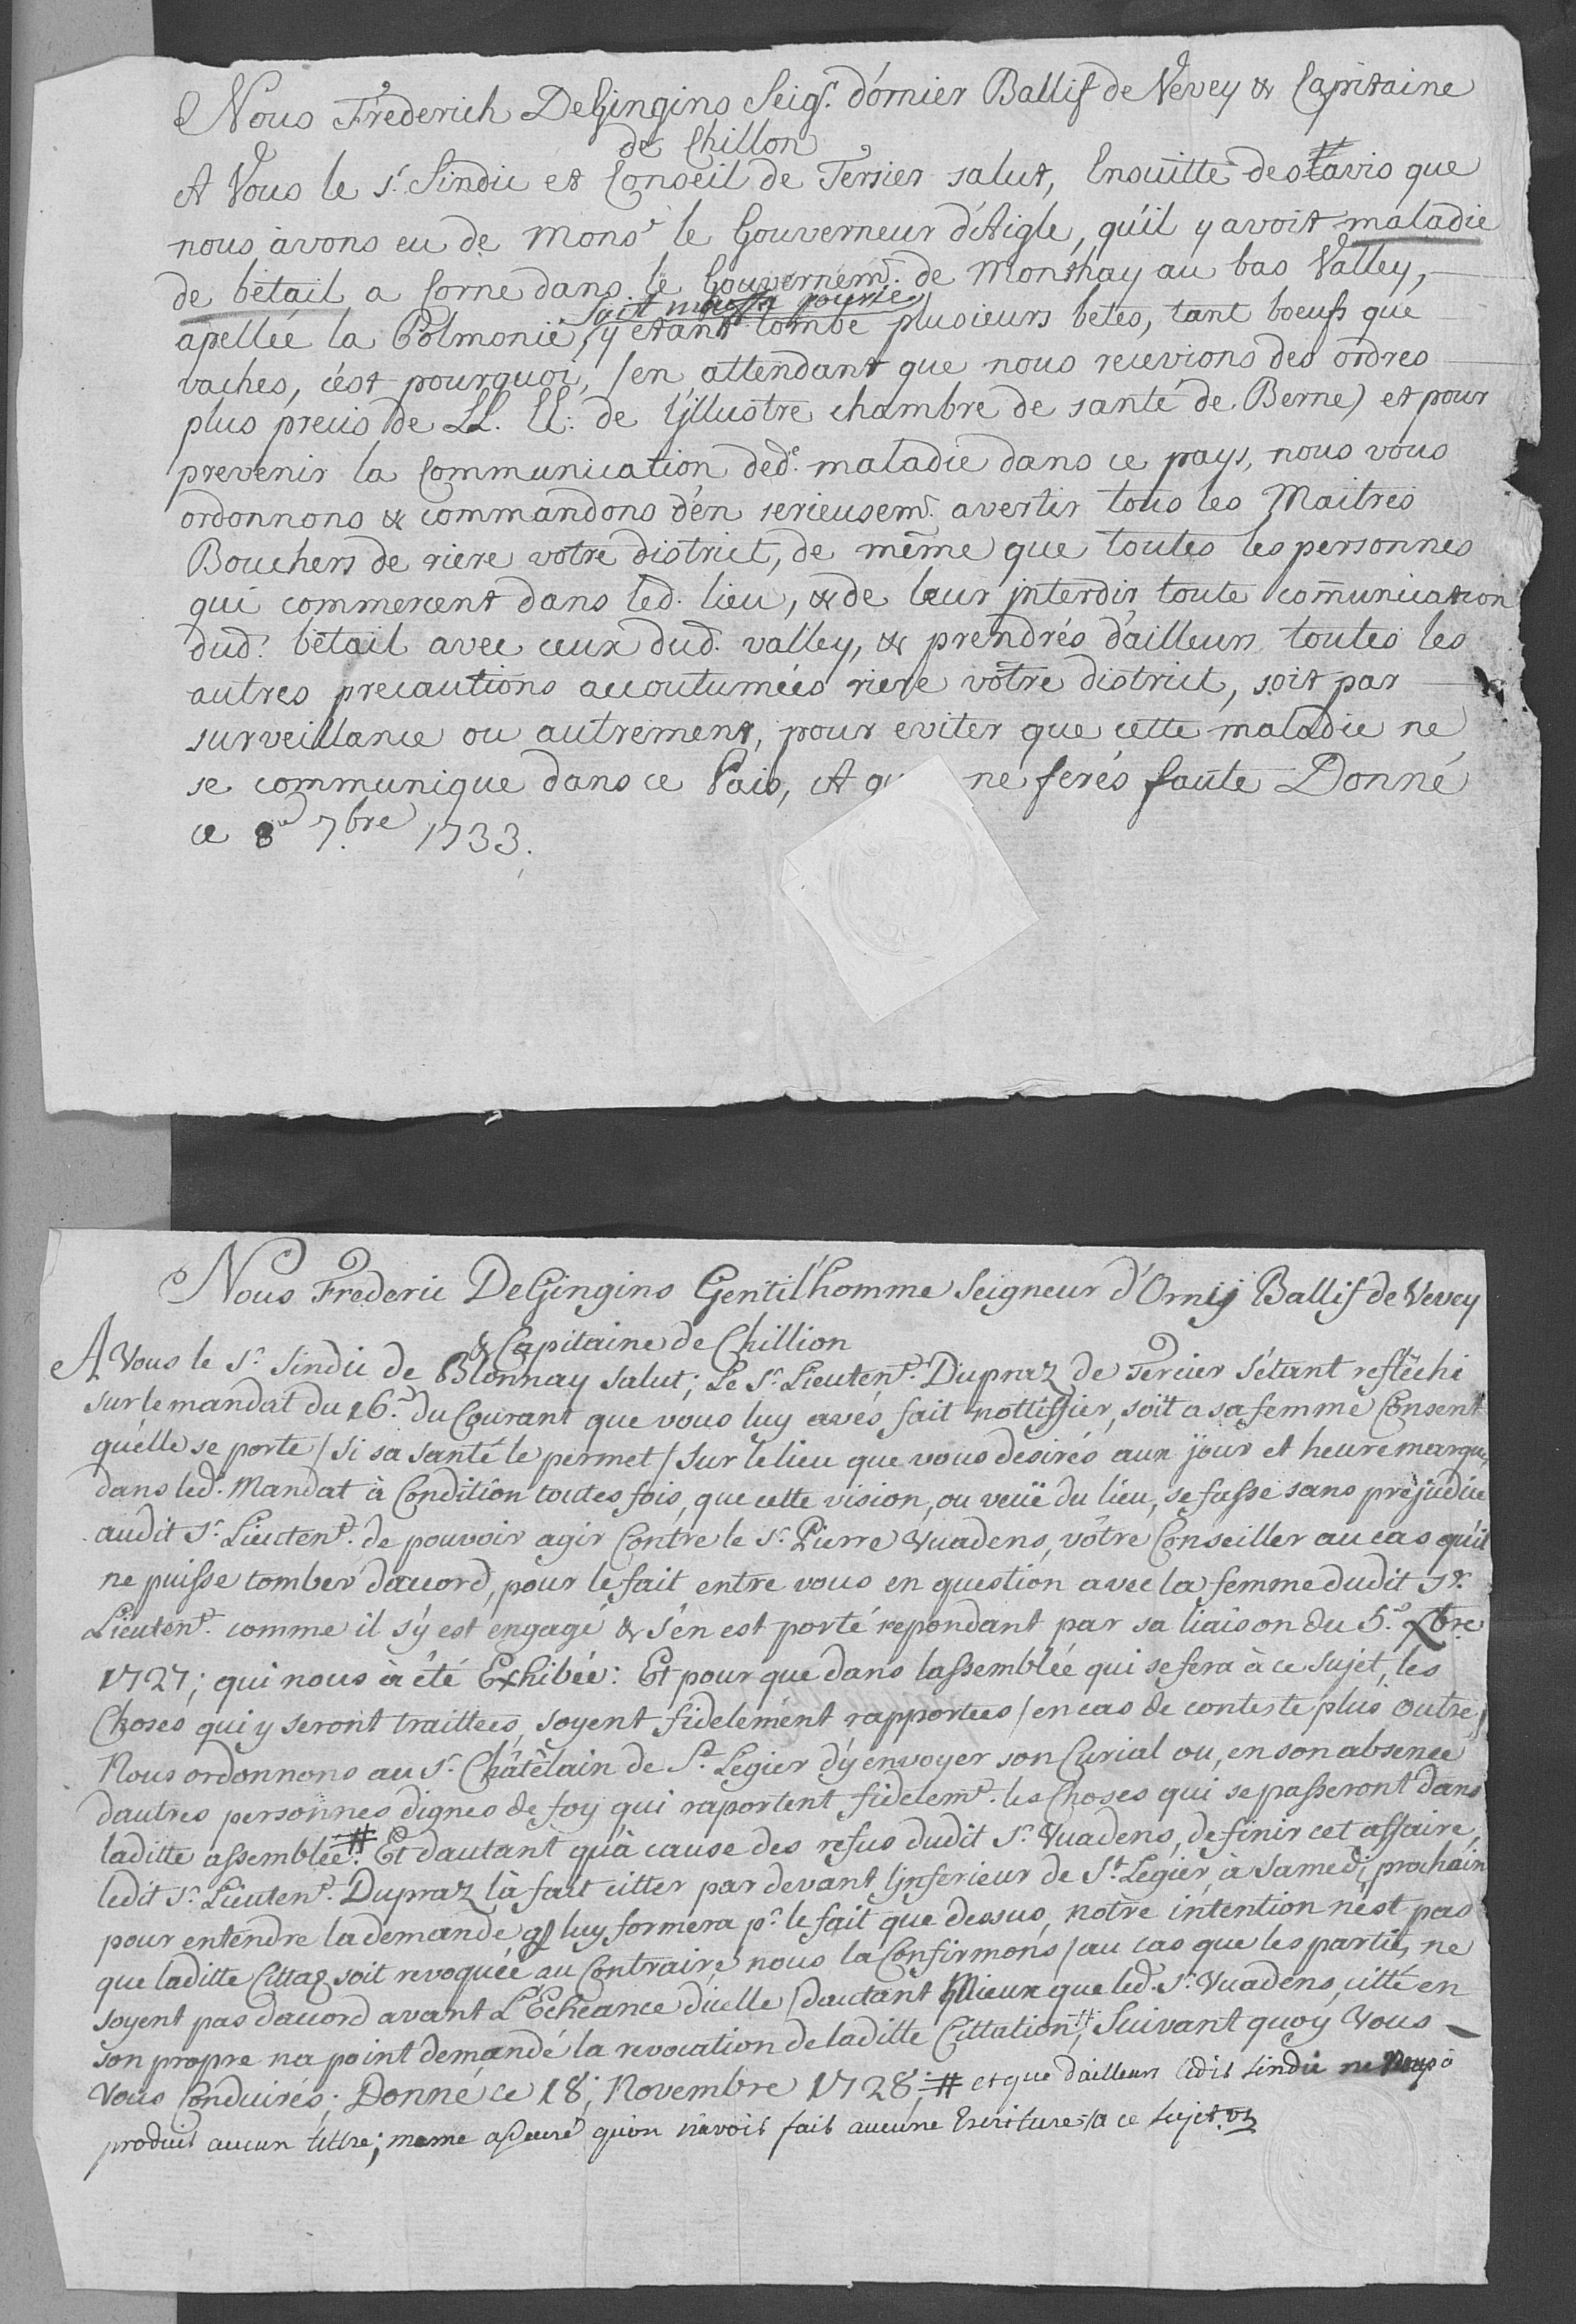 Nous Frederich DeGingins Seigr. d'ornier Ballif de Vevey & Capitaine
de Chillon
A Vous le sr. Sindic et Conseil de Tersier salut, Ensuitte des avis que
nous avons eu de Monsr le Gouverneur d'Aigle, qu'il y avoit maladie
de bêtail a Corne dans le Gouvernemt. de Monthay au bas Valley,
soit pourrie
apellée la Polmonie, y etant tombé plusieurs bêtes, tant boeufs que
vaches, c'est pourquoi, /en attendant que nous recevions des ordres
plus precis de LL. EE. de l'jllustre chambre de santé de Berne) et pour
prevenir la Communication dede. maladie dans ce pays, nous vous
ordonnons & commandons d'en serieusemt. avertir tous les Maitres
Bouchers de riere votre district, de même que toutes les personnes
qui commercent dans led. lieu, & de leur jnterdir toute com̄unication
dud. bétail avec ceux dud. valley, & prendrés d'ailleurs toutes les
autres precautions accoutumées riere vôtre district, soit par
surveillance ou autrement, pour eviter que cette maladie ne
se communique dans ce Pais, A ne ferés faute Donné
ce 8e 7.bre 1733.
Nous Frederic DeGingins Gentil'homme Seigneur d'Orny Ballif de Vevey
& Capitaine de Chillion
A Vous le Sr. Sindic de Blonnay salut; Le Sr. Lieutent. Dupraz de Tercier s'étant reflêchi
sur le mandat du 16.e du Courant que vous luy avés fait nottiffier, soit a sa femme Consent
qu'elle se porte / si sa santé le permet / sur le lieu que vous desirés aux jour et heure marqués
dans led. Mandat à Condition toutes fois, que cette vision, ou veüe du lieu, se fasse sans prejudice
audit Sr. Lieutent. de pouvoir agir Contre le Sr. Pierre Vuadens, vôtre Conseiller au cas qu'il
ne puisse tomber d'accord, pour le fait entre vous en question avec la femme dudit Sr.
Lieutent. comme il s'y est engagé & s'en est porté repondant par sa liaison du 5.e Xbre
1727; qui nous à été Exhibée: Et pour que dans lassemblée qui se fera à ce sujet, les
Choses qui y seront traittées, soyent fidelement rapportées / en cas de conteste plus outre /
Nous ordonnons au Sr. Châtêlain de St. Legier d'y envoyer son Curial ou, en son absence
dautres personnes dignes de foy qui raportent fidelemt. les Choses qui se passeront dans
laditte assemblée.# Et dautant qu'à cause des refus dudit Sr. Vuadens, de finir cet affaire,
ledit Sr. Lieutent. Dupraz là fait citter par devant l'jnferieur de St. Legier, à Samedi prochain
pour entendre la demande ql luy formera pr. le fait que dessus, nôtre intention n'est pas
que laditte Cittaõ soit revoquée au Contraire nous la Confirmons / au cas que les partiés ne
soyent pas daccord avant L'Echeance d'icelle / dautant Mieux que led. Sr. Vuadens, citté en
son propre na point demandé la revocation de laditte Cittation,# Suivant quoy Vous
Vous Conduirés; Donné ce 18; Novembre 1728; # et que d'ailleurs ledit sindic ne Nous à
produit aucun tittre; meme asseuré qu'on n'avoit fait aucune Ecriture à ce sujet.